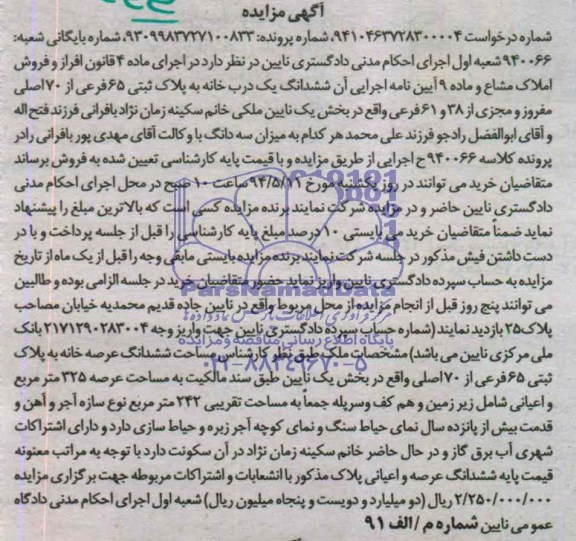 آگهی مزایده
شماره درخواست ۹۴۱۰۴۶۳۷۲۸۳۰۰۰۰۴، شماره پرونده: ۹۳۰۹۹۸۳۷۲۷۱۰۰۸۳۳، شماره بایگانی شعبه:
۹۴۰۰۶۶ شعبه اول اجرای احکام مدنی دادگستری نایین در نظر دارد در اجرای ماده ۴ قانون افراز و فروش
املاک مشاع و ماده ۹ آیین نامه اجرایی آن ششدانگ یک درب خانه به پلاک ثبتی ۶۵ فرعی از ۷۰ اصلی
مفروز و مجزی از ۳۸ و ۶۱ فرعی واقع در بخش یک نایین ملکی خانم سکینه زمان نژاد بافرانی فرزند فتح اله
و آقای ابوالفضل رادجو فرزند علی محمد هر کدام به میزان سه دانگ با وکالت آقای مهدی پور بافرانی را در
پرونده کلاسه ۹۴۰۰۶۶ ح اجرایی از طریق مزایده و با قیمت پایه کارشناسی تعیین شده به فروش برساند
متقاضیان خرید می توانند در روز یکشنبه مورخ ۹۴/۵/۱۱ ساعت ۱۰ صبح در محل اجرای احکام مدنی
دادگستری نایین حاضر و در مزایده شرکت نمایند برنده مزایده کسی است که بالاترین مبلغ را پیشنهاد
نماید ضمناً متقاضیان خرید می بایستی ۱۰ درصد مبلغ پایه کارشناسی را قبل از جلسه پرداخت و با در
دست داشتن فیش مذکور در جلسه شرکت نمایند برنده مزایده بایستی مابقی وجه را قبل از یک ماه از تاریخ
مزایده به حساب سپرده دادگستری نایین واریز نماید حضور متقاضیان خرید در جلسه الزامی بوده و طالبین
می توانند پنج روز قبل از انجام مزایده از محل مربوط واقع در نایین جاده قدیم محمدیه خیابان مصاحب
پلاک ۲۵ بازدید نمایند (شماره حساب سپرده دادگستری نایین جهت واریز وجه ۲۱۷۱۲۹۰۲۸۳۰۰۴ بانک
ملی مرکزی نایین می باشد) مشخصات ملک طبق نظر کارشناس مساحت ششدانگ عرصه خانه به پلاک
ثبتی ۶۵ فرعی از ۷۰ اصلی واقع در بخش یک نایین طبق سند مالکیت به مساحت عرصه ۳۲۵ متر مربع
و اعیانی شامل زیر زمین و هم کف و سرپله جمعاً به مساحت تقریبی ۲۴۲ متر مربع نوع سازه آجر و آهن و
قدمت بیش از پانزده سال نمای حیاط سنگ و نمای کوچه آجر زبره و حیاط سازی دارد و دارای اشتراکات
شهری آب برق گاز و در حال حاضر خانم سکینه زمان نژاد در آن سکونت دارد با توجه به مراتب معنونه
قیمت پایه ششدانگ عرصه و اعیانی پلاک مذکور با انشعابات و اشتراکات مربوطه جهت برگزاری مزایده
۲/۲۵۰/۰۰۰/۰۰۰ ریال (دو میلیارد و دویست و پنجاه میلیون ریال) شعبه اول اجرای احکام مدنی دادگاه
عمومی نایین شماره م/الف ۹۱
ParsNamadData
پایگاه اطلاع رسانی مناقصه و مزایده
۰۲۱-۸۸۳۴۹۶۷۰-۵